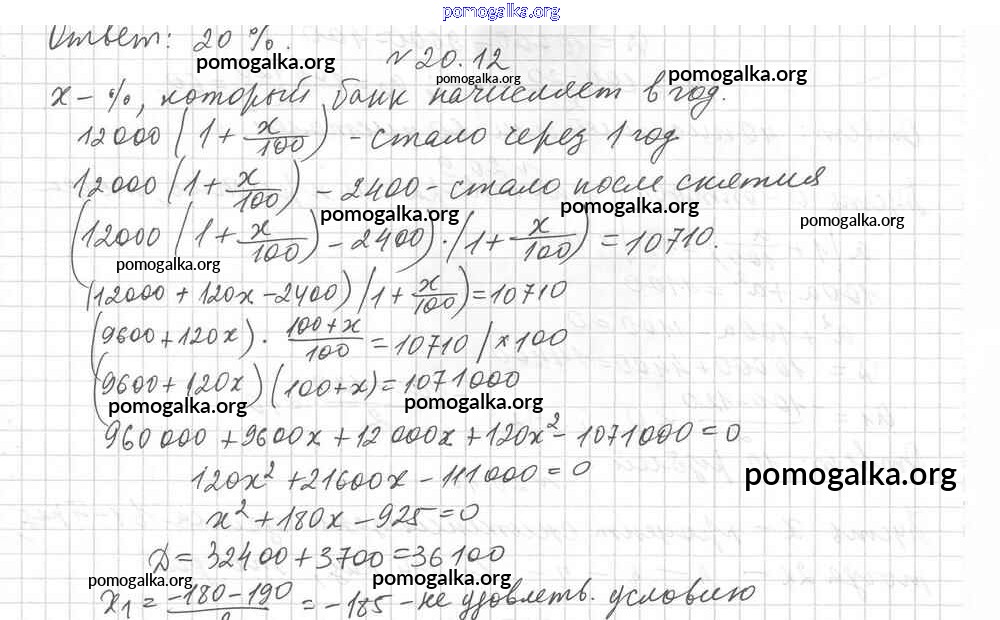 pomogalka.org
Ответ: 20 %.
pomogalka.org
№ 20.12
pomogalka.org
pomogalka.org
x - %, который банк начисляет в год.
12000 (1 + x/100) - стало через 1 год
12000 (1 + x/100) - 2400 - стало после снятия
pomogalka.org
pomogalka.org
pomogalka.org
(12000 (1 + x/100) - 2400) · (1 + x/100) = 10710.
pomogalka.org
(12000 + 120x - 2400) (1 + x/100) = 10710
(9600 + 120x) · (100 + x)/100 = 10710 / × 100
(9600 + 120x) (100 + x) = 1071000
pomogalka.org
pomogalka.org
960 000 + 9600x + 12 000x + 120x² - 1071000 = 0
120x² + 21600x - 111000 = 0
pomogalka.org
x² + 180x - 925 = 0
Д = 32400 + 3700 = 36100
pomogalka.org
pomogalka.org
x₁ = (-180 - 190)/2 = -185 - не удовлетв. условию